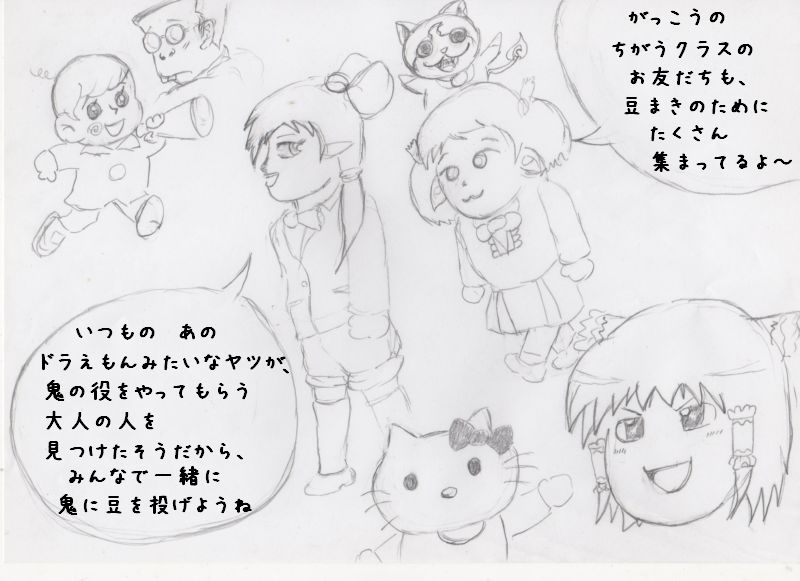 がっこうの
ちがうクラスの
お友だちも、
豆まきのために
たくさん
集まってるよ～
いつもの　あの
ドラえもんみたいなヤツが、
鬼の役をやってもらう
大人の人を
見つけたそうだから、
みんなで一緒に
鬼に豆を投げようね